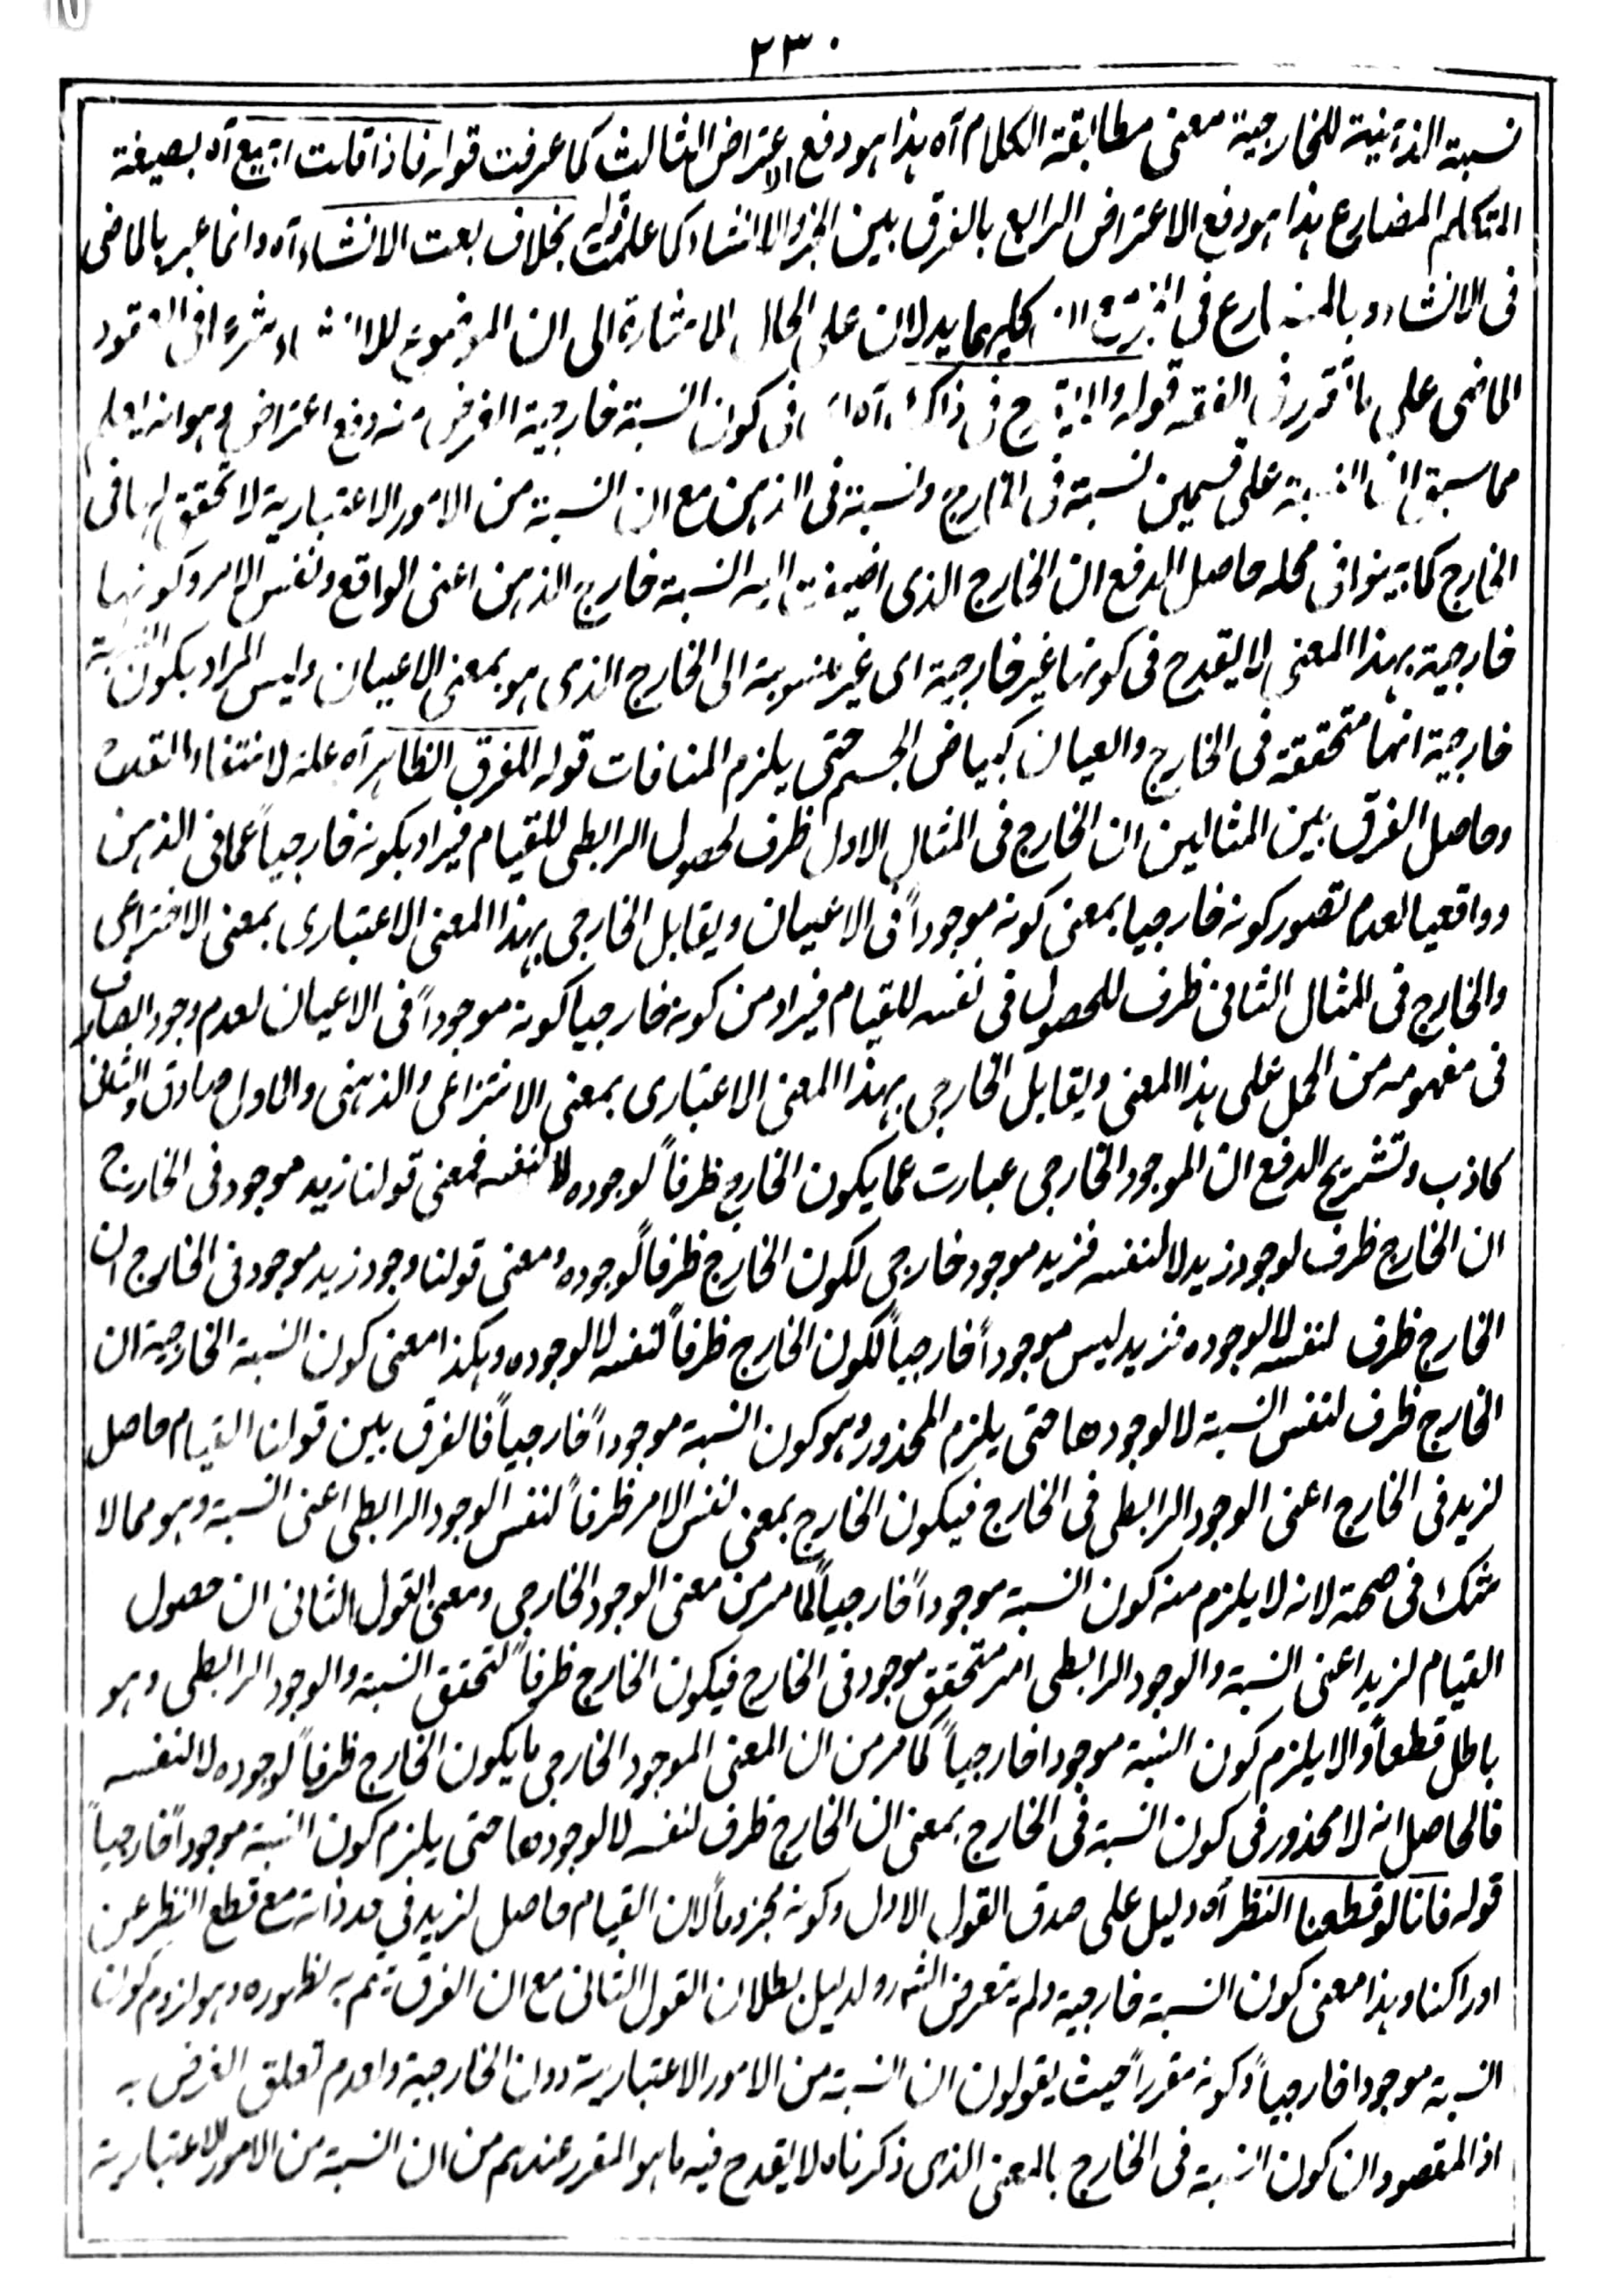 ٢٣٠
نسبة الذهنية للخارجية معنى مطابقة الكلام آه هذا هو دفع الاعتراض الثالث كما عرفت قوله فاذا قلت ابيع آه بصيغة
المتكلم المضارع هذا هو دفع الاعتراض الرابع بالفرق بين الخبر والانشاء كما علمت قوله بخلاف بعت الانشاء آه وانما عبر بالماضى
فى الانشاء وبالمضارع فى يدلان على الحال الاشارة الى ان الموضوع للانشاء شرعا فى العقود
الماضى على ما تقرر فى الفقه قوله ح فى ذلك آه اى فى كون النسبة خارجية الغرض منه دفع اعتراض وهو انه يعلم
مما سبق ان النسبة على قسمين نسبة فى الخارج ونسبة فى الذهن مع ان النسبة من الامور الاعتبارية لا تحقق لها فى
الخارج كما بينوا فى محله حاصل الدفع ان الخارج الذى اضيفت اليه النسبة خارج الذهن اعنى الواقع ونفس الامر وكونها
خارجية بهذا المعنى لا يقدح فى كونها غير خارجية اى غير منسوبة الى الخارج الذى هو بمعنى الاعيان وليس المراد بكون النسبة
خارجية انها متحققة فى الخارج والعيان كبياض الجسم حتى يلزم المنافات قوله للفرق الظاهر آه علة لانتفاء القدح
وحاصل الفرق بين المثالين ان الخارج فى المثال الاول ظرف لحصول الرابطى للقيام فيراد بكونه خارجياً عما فى الذهن
وواقعيا لعدم تصور كونه خارجيا بمعنى كونه موجوداً فى الاعيان ويقابل الخارجى بهذا المعنى الاعتبارى بمعنى الاختراعى
والخارج فى المثال الثانى ظرف للحصول فى نفسه للقيام فيراد من كونه خارجيا كونه موجوداً فى الاعيان لعدم وجود الصارف
فى مفهومه من الحمل على هذا المعنى ويقابل الخارجى بهذا المعنى الاعتبارى بمعنى الانتزاعى والذهنى والاول صادق والثانى
كاذب وتشريح الدفع ان الموجود الخارجى عبارت عما يكون الخارج ظرفاً لوجوده لا لنفسه فمعنى قولنا زيد موجود فى الخارج
ان الخارج ظرف لوجود زيد لا لنفسه فزيد موجود خارجى لكون الخارج ظرفاً لوجوده ومعنى قولنا وجود زيد موجود فى الخارج ان
الخارج ظرف لنفسه لا لوجوده فزيد ليس موجوداً خارجياً لكون الخارج ظرفاً لنفسه لا لوجوده وهكذا معنى كون النسبة الخارجية ان
الخارج ظرف لنفس النسبة لا لوجودها حتى يلزم المحذور وهو كون النسبة موجوداً خارجياً فالفرق بين قولنا القيام حاصل
لزيد فى الخارج اعنى الوجود الرابطى فى الخارج فيكون الخارج بمعنى نفس الامر ظرفاً لنفس الوجود الرابطى اعنى النسبة وهو مما لا
شك فى صحته لانه لا يلزم منه كون النسبة موجوداً خارجياً لما مر من معنى الوجود الخارجى ومعنى القول الثانى ان حصول
القيام لزيد اعنى النسبة والوجود الرابطى امر متحقق موجود فى الخارج فيكون الخارج ظرفاً لتحقق النسبة والوجود الرابطى وهو
باطل قطعاً والا يلزم كون النسبة موجودا خارجياً كما مر من ان المعنى الموجود الخارجى ما يكون الخارج ظرفاً لوجوده لا لنفسه
فالحاصل انه لا محذور فى كون النسبة فى الخارج بمعنى ان الخارج ظرف لنفسه لا لوجودها حتى يلزم كون النسبة موجوداً خارجياً
قوله فانا لو قطعنا النظر آه دليل على صدق القول الاول وكونه مجزوماً لان القيام حاصل لزيد فى حد ذاته مع قطع النظر عن
ادراكنا وهذا معنى كون النسبة خارجية ولم يتعرض الشارح لدليل بطلان القول الثانى مع ان الفرق يتم به لظهوره وهو لزوم كون
النسبة موجودا خارجياً وكونه مقرراً حيث يقولون ان النسبة من الامور الاعتبارية دون الخارجية ولعدم تعلق الغرض به
اذ المقصود ان كون النسبة فى الخارج بالمعنى الذى ذكرناه لا يقدح فيه ما هو المقرر عندهم من ان النسبة من الامور الاعتبارية